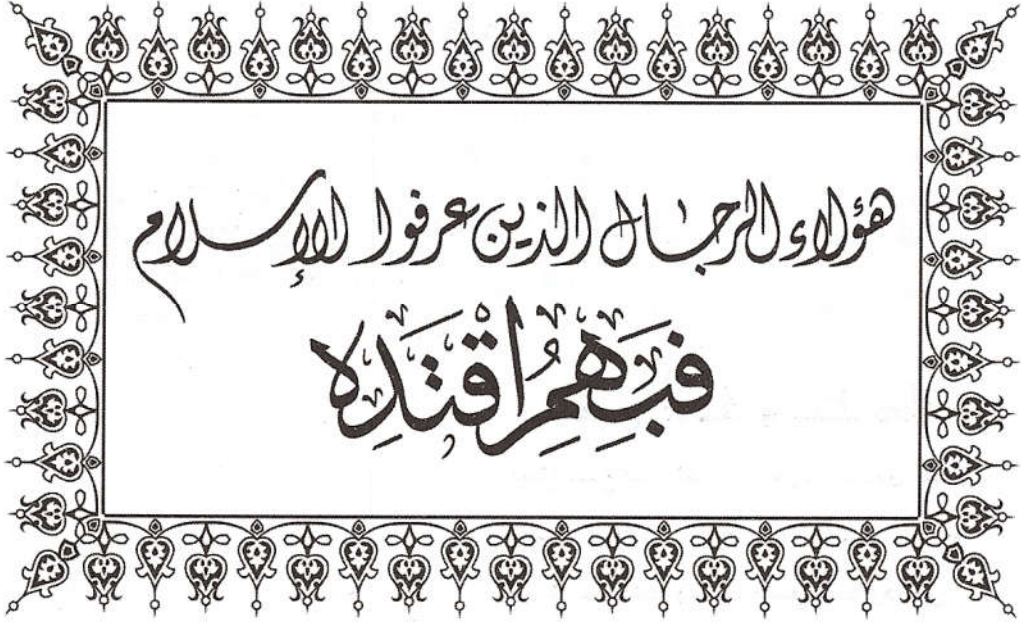 هؤلاء الرجال الذين عرفوا الإسلام
فَبِهِمُ اقْتَدِه